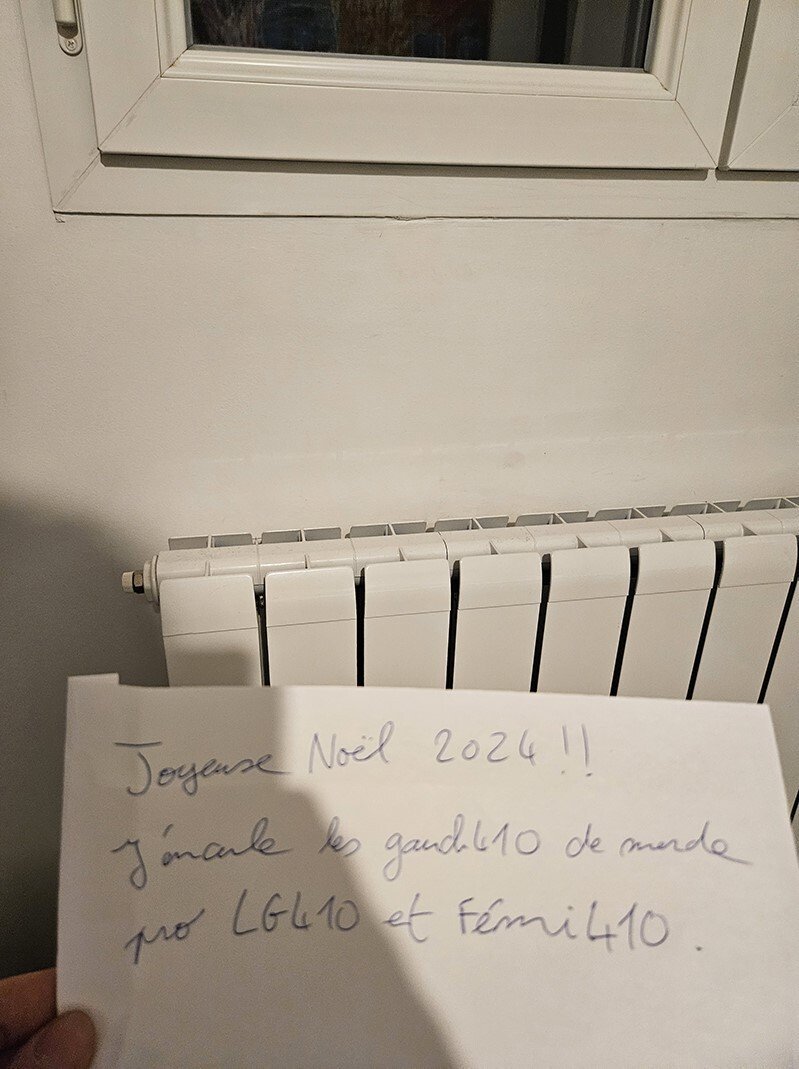 Joyeuse Noël 2024 !!
J'encule les gauch410 de merde
pro LG410 et Fémi410.